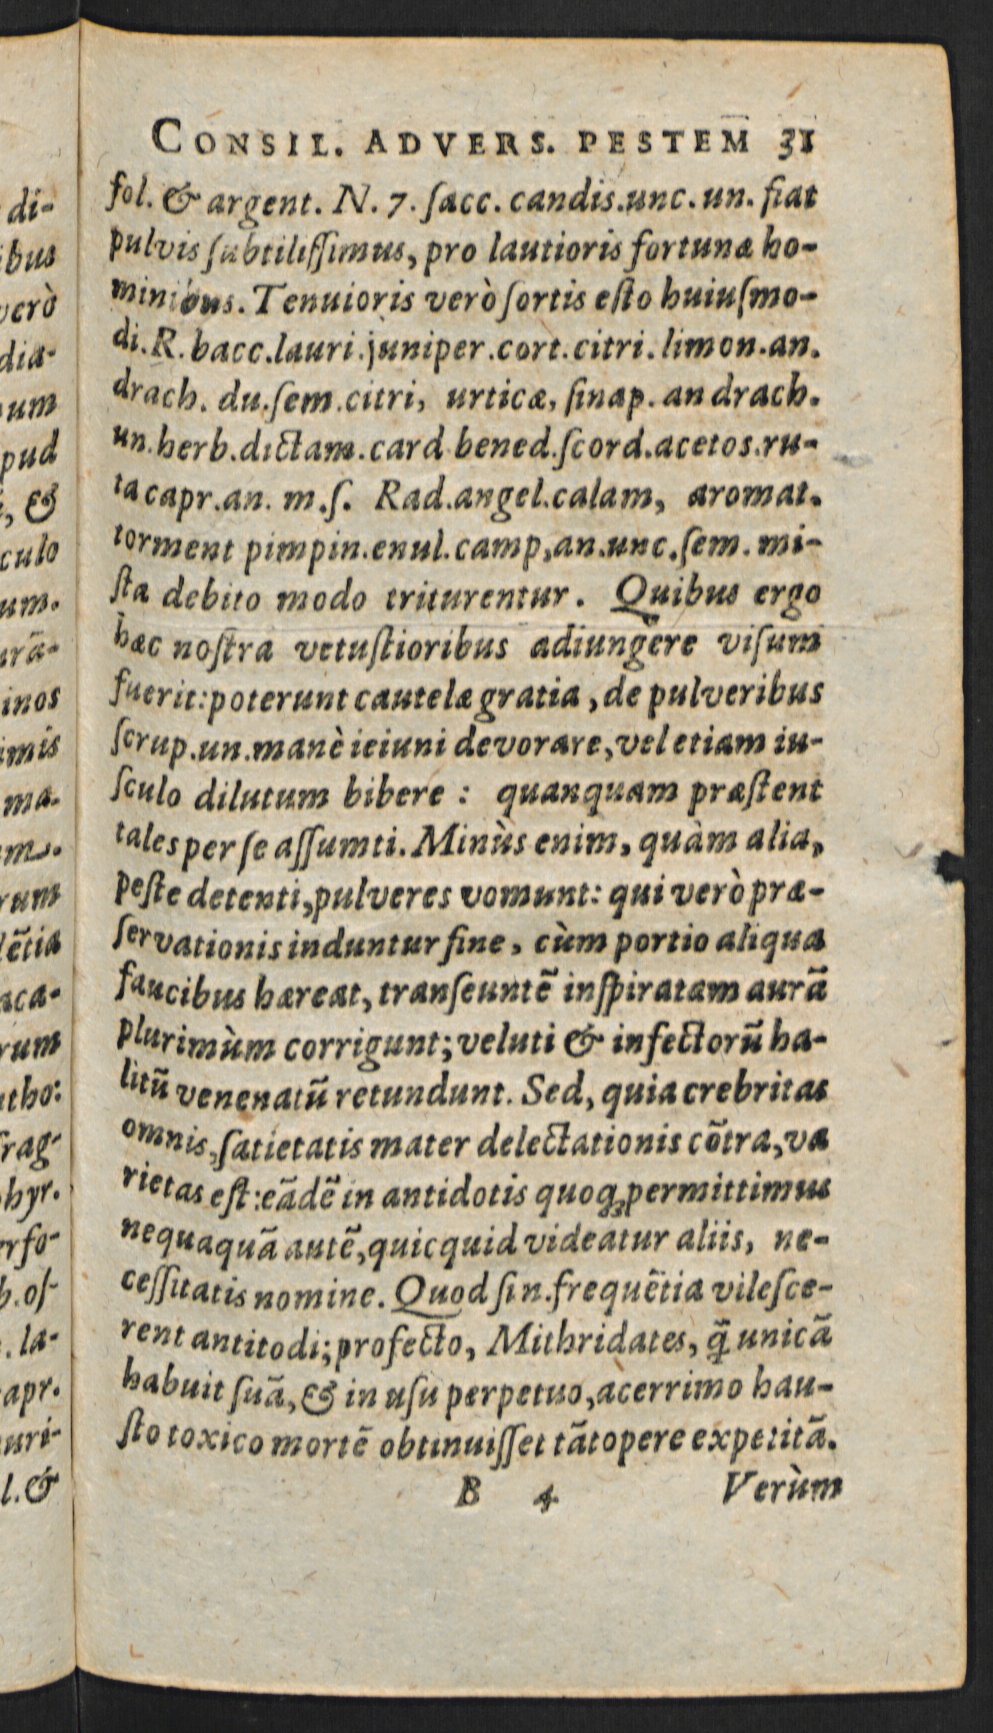 CONSIL. ADVERS. PESTEM 31
fol. & argent. N. 7. ſacc. candis.unc. un. fiat
pulvis ſubtiliſſimus, pro lautioris fortunæ ho-
minibus. Tenuioris verò ſortis eſto huiuſmo-
di. R. bacc.lauri.juniper.cort.citri.limon.an.
drach. du.ſem.citri, urticæ, ſinap. an drach.
un.herb.dictam.card bened.ſcord.acetos.ru-
ta capr.an. m.ſ. Rad.angel.calam, aromat.
torment pimpin.enul.camp,an.unc.ſem. mi-
ſta debito modo triturentur. Quibus ergo
hæc noſtra vetuſtioribus adiungere viſum
fuerit:poterunt cautelæ gratia, de pulveribus
ſcrup.un.manè ieiuni devorare,vel etiam iu-
ſculo dilutum bibere: quanquam præſtent
tales per ſe aſſumti. Minùs enim, quàm alia,
peſte detenti,pulveres vomunt: qui verò præ-
ſervationis induntur fine, cùm portio aliqua
faucibus hæreat, tranſeuntẽ inſpiratam aurã
plurimùm corrigunt; veluti & infectorũ ha-
litũ venenatũ retundunt. Sed, quia crebritas
omnis,ſatietatis mater delectationis cõtra,va
rietas eſt:eãdẽ in antidotis quoqꝫ permittimus
nequaquã autẽ,quicquid videatur aliis, ne-
ceſſitatis nomine. Quod ſin.frequẽtia vileſce-
rent antitodi; profecto, Mithridates, q̃ unicã
habuit ſuã, & in uſu perpetuo,acerrimo hau-
ſto toxico mortẽ obtinuiſſet tãtopere expetitã.
B 4 Verùm
di-
ibus
verò
dia-
num
pud
, &
culo
um.
urã-
inos
imis
ma-
em.
rum
lẽtia
aca-
rum
atho:
frag-
hyr.
erfo-
b.oſ-
. la-
apr.
uri-
l. &